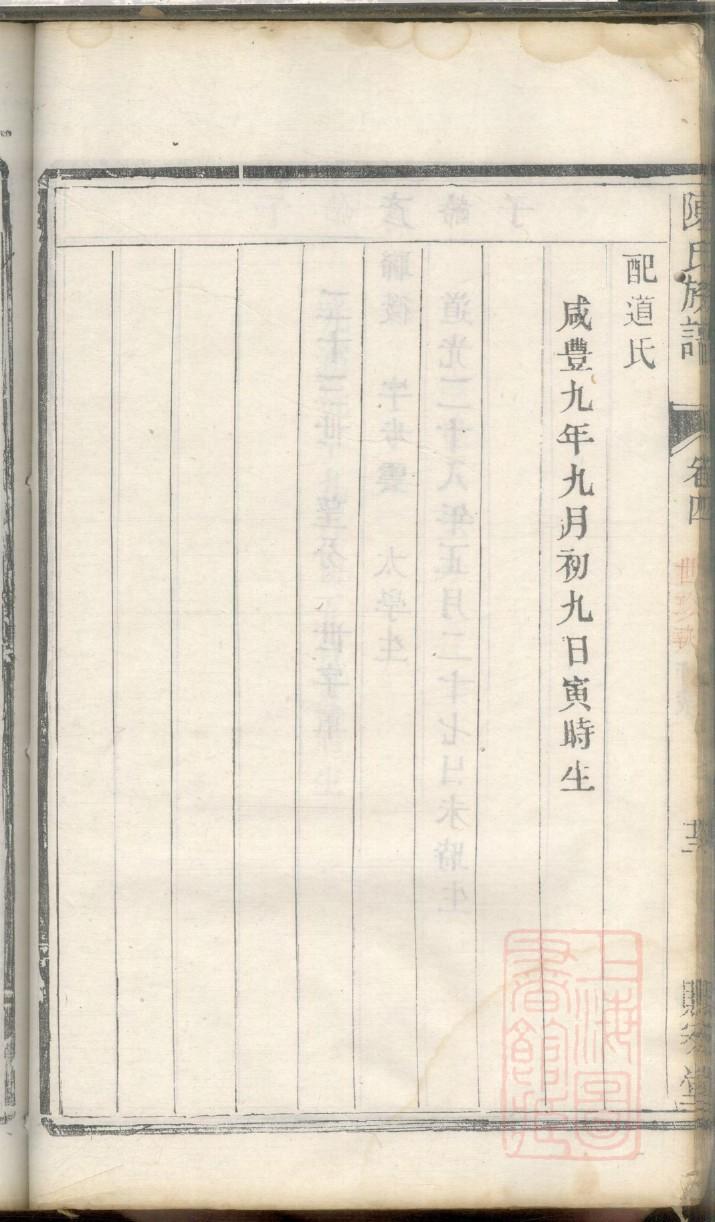 陳氏族譜
卷四
配道氏
咸豐九年九月初九日寅時生
上海圖書館藏